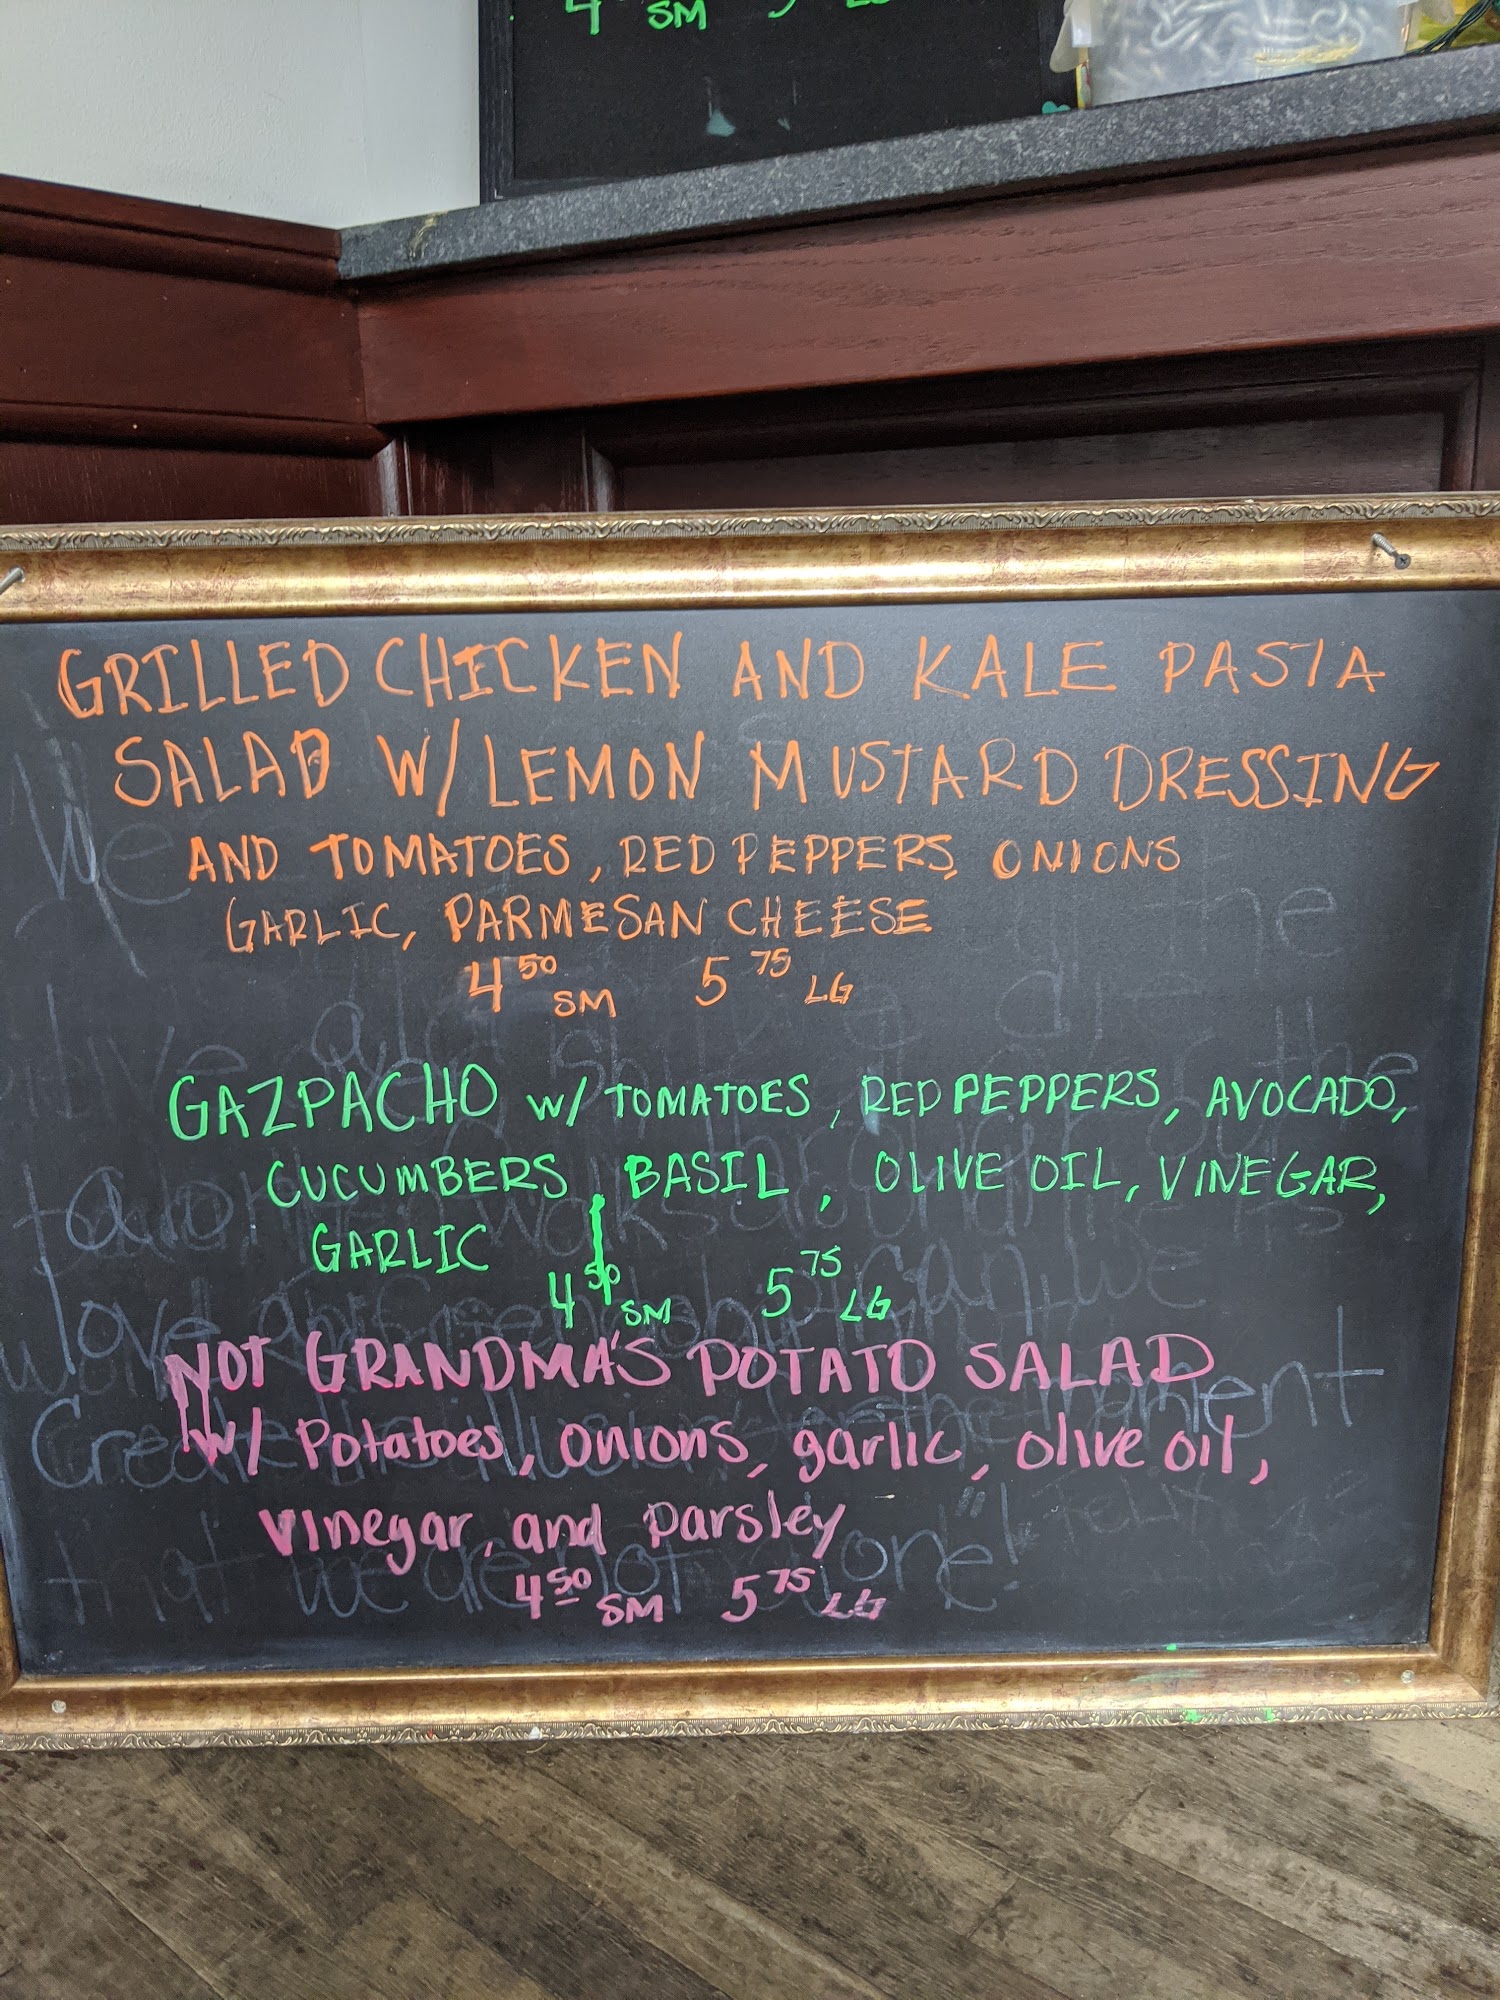 4 SM 5 LG
GRILLED CHICKEN AND KALE PASTA
SALAD W/ LEMON MUSTARD DRESSING
AND TOMATOES, RED PEPPERS, ONIONS
GARLIC, PARMESAN CHEESE
4 50 SM 5 75 LG
GAZPACHO W/ TOMATOES, RED PEPPERS, AVOCADO,
CUCUMBERS, BASIL, OLIVE OIL, VINEGAR,
GARLIC
4 50 SM 5 75 LG
NOT GRANDMA'S POTATO SALAD
W/ Potatoes, onions, garlic, olive oil,
vinegar, and parsley
4 50 SM 5 75 LG